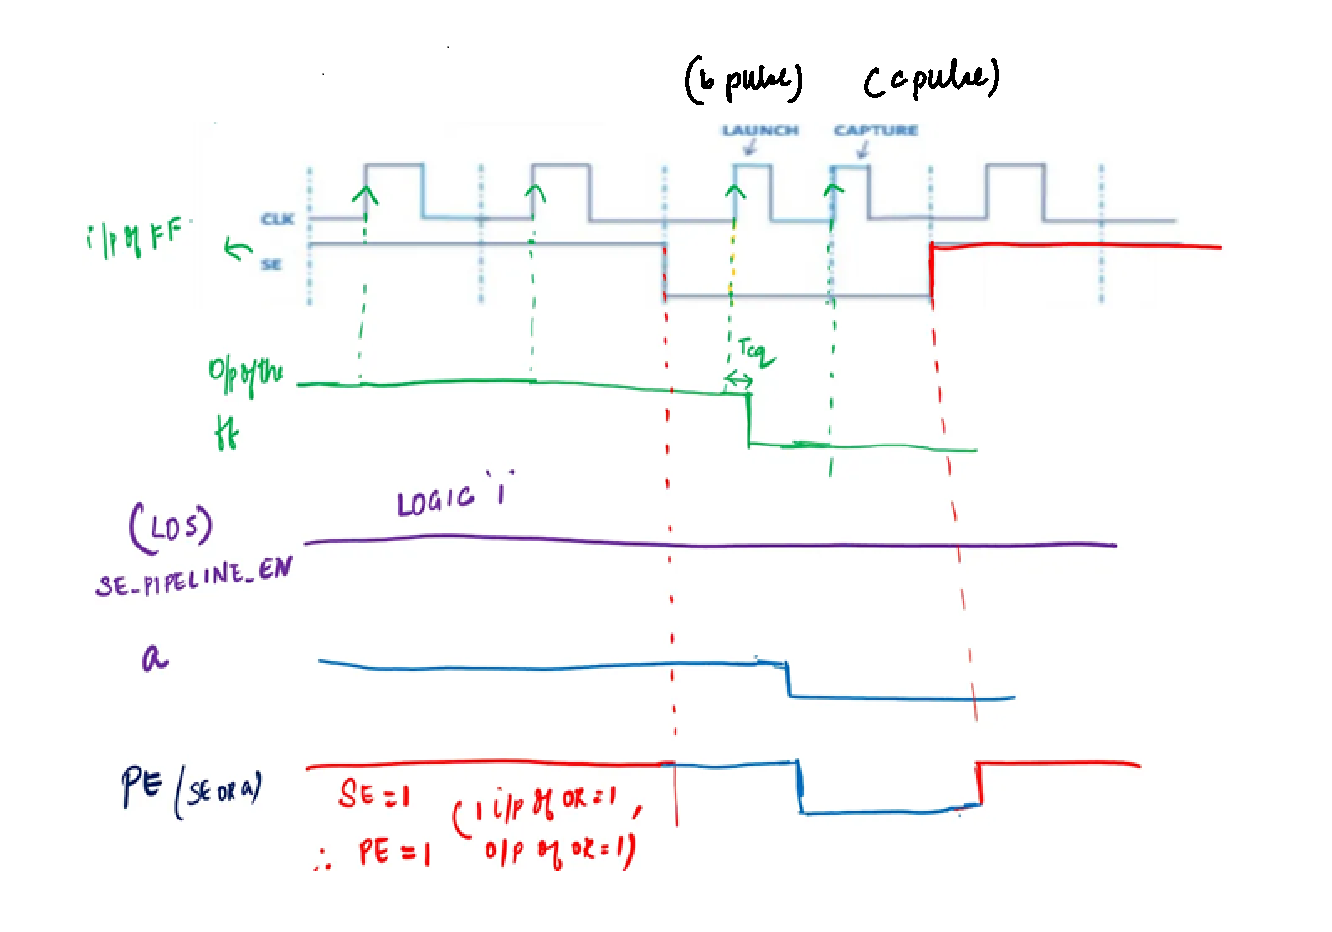 (b pulse) (c pulse)
LAUNCH CAPTURE
CLK
i/p of FF
SE
Tcq
O/p of the
ff
LOGIC '1'
(LOS)
SE_PIPELINE_EN
a
PE (SE OR a)
SE = 1 (1 i/p of OR = 1,
∴ PE = 1 O/P of OR = 1)